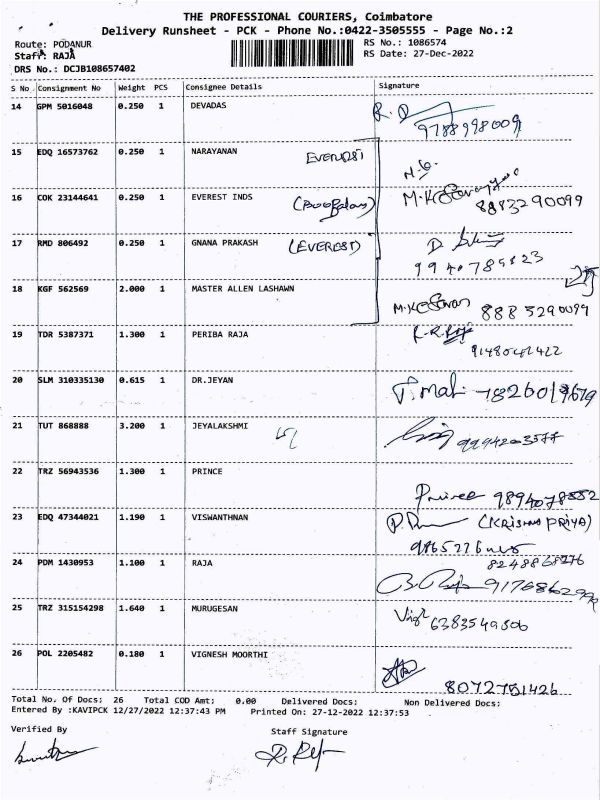 THE PROFESSIONAL COURIERS, Coimbatore
Delivery Runsheet - PCK - Phone No.:0422-3505555 - Page No.:2
Route: PODANUR
RS No.: 1086574
Staff: RAJA
RS Date: 27-Dec-2022
DRS No.: DCJB108657402
S No Consignment No Weight PCS Consignee Details Signature
14 GPM 5016048 0.250 1 DEVADAS
9788998009
15 EDQ 16573762 0.250 1 NARAYANAN EVEREST
16 COK 23144641 0.250 1 EVEREST INDS 8883290099
17 RMD 806492 0.250 1 GNANA PRAKASH (EVEREST)
18 KGF 562569 2.000 1 MASTER ALLEN LASHAWN M.Kesavan 8885290099
19 TDR 5387371 1.300 1 PERIBA RAJA
20 SLM 310335130 0.615 1 DR.JEYAN
21 TUT 868888 3.200 1 JEYALAKSHMI
22 TRZ 56943536 1.300 1 PRINCE
Prince
23 EDQ 47344021 1.190 1 VISWANTHNAN (KRISHNA PRIYA)
24 PDM 1430953 1.100 1 RAJA
25 TRZ 315154298 1.640 1 MURUGESAN
26 POL 2205482 0.180 1 VIGNESH MOORTHI
Total No. Of Docs: 26 Total COD Amt: 0.00 Delivered Docs: Non Delivered Docs:
Entered By :KAVIPCK 12/27/2022 12:37:43 PM Printed On: 27-12-2022 12:37:53
Verified By
Staff Signature